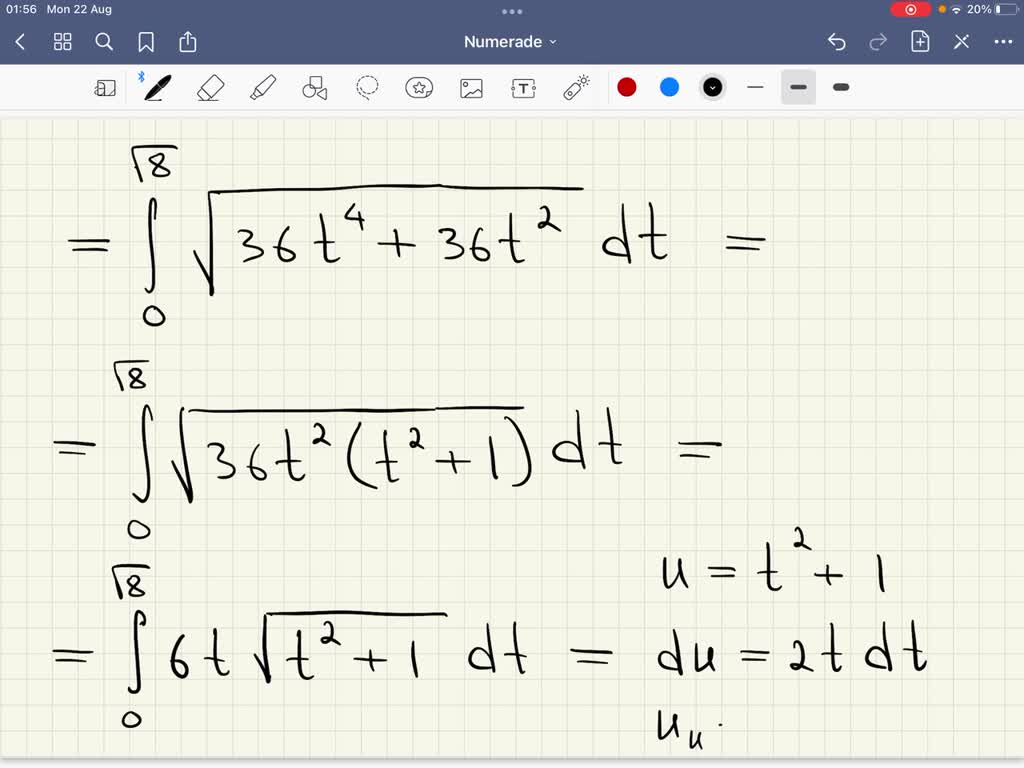 01:56 Mon 22 Aug 20%
Numerade
T
= ∫₀^√8 √(36t⁴ + 36t²) dt =
= ∫₀^√8 √(36t²(t² + 1)) dt =
u = t² + 1
= ∫₀^√8 6t √(t² + 1) dt = du = 2t dt
u_u